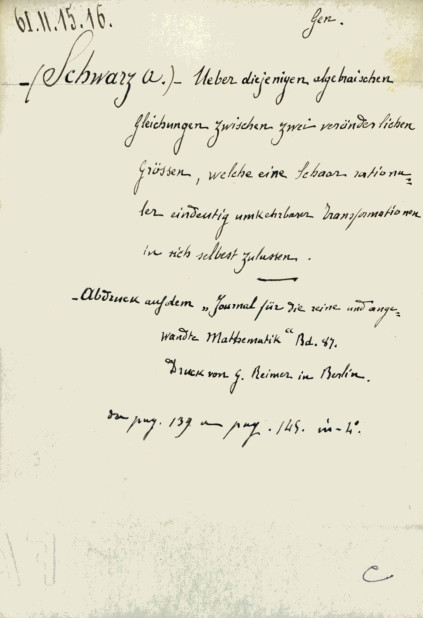 61.11.15.16.
Gen.
-(Schwarz A.)- Ueber diejenigen algebraischen
Gleichungen zwischen zwei veränderlichen
Grössen, welche eine Schaar rationa=
ler eindeutig umkehrbarer Transformationen
in sich selbest zulassen.
-Abdruck auf dem „Journal für die reine und ange=
wandte Mathematik“ Bd. 87.
Druck von G. Reimer in Berlin.
da pag. 139 a pag. 145. in-4°.
C